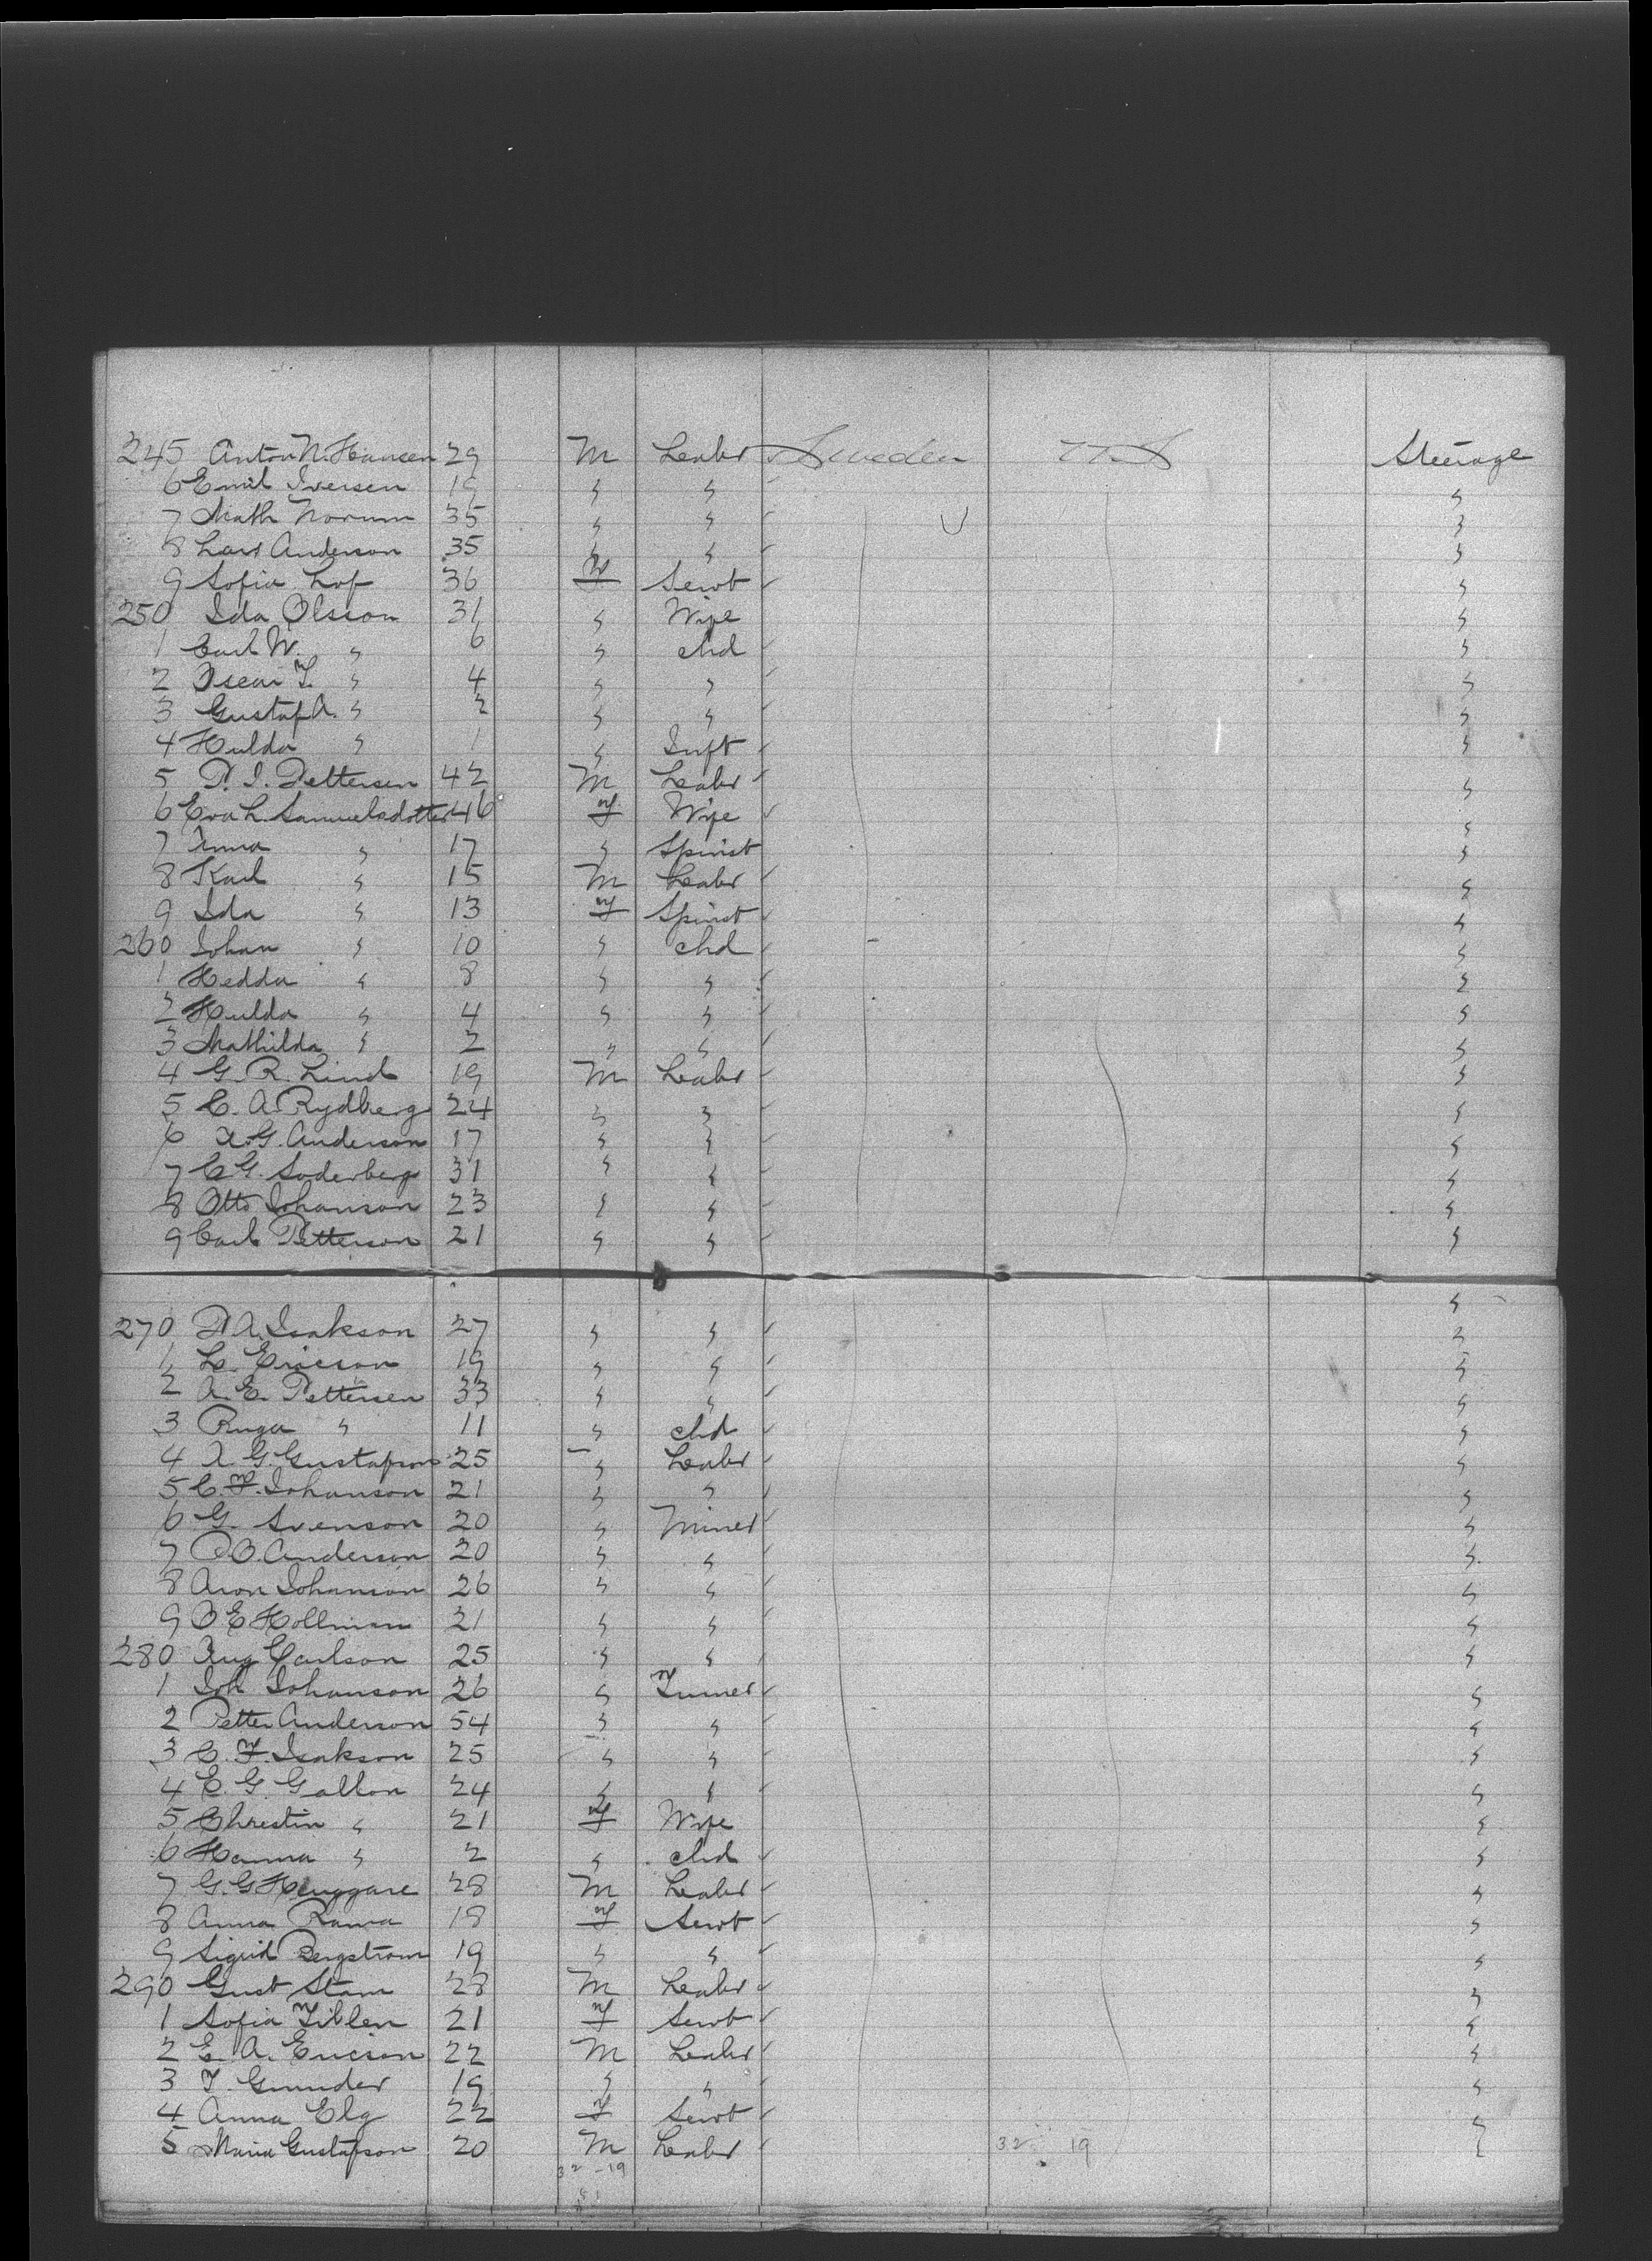 245 Anton N. Hansen 29 M Labr Sweden U.S Steerage
6 Emil Iversen 19 " " "
7 Math Norum 35 " " "
8 Lars Anderson 35 " " "
9 Sofia Lof 36 F Servt "
250 Ida Olsson 31 " Wife "
1 Carl W. " 6 " chd "
2 Oscar F. " 4 " " "
3 Gustaf A. " 2 " " "
4 Hulda " 1 " Inft "
5 P. I. Pettersen 42 M Labr "
6 Eva L. Samuelsdotter 46 F Wife "
7 Anna " 17 " Spinst "
8 Karl " 15 M Labr "
9 Ida " 13 F Spinst "
260 Johan " 10 " chd "
1 Hedda " 8 " " "
2 Hulda " 4 " " "
3 Mathilda " 2 " " "
4 G. R. Lind 19 M Labr "
5 C. A. Rydberg 24 " " "
6 A. G. Anderson 17 " " "
7 C G. Soderberg 31 " " "
8 Otto Johanson 23 " " "
9 Carl Petterson 21 " " "
"
270 A. Isakson 27 " " "
1 L. Ericson 19 " " "
2 A. E. Pettersen 33 " " "
3 " 11 " chd "
4 A. G. Gustafson 25 " Labr "
5 C. F. Johanson 21 " " "
6 G. Svenson 20 " Miner "
7 P O. Anderson 20 " " "
8 Aron Johanson 26 " " "
9 O E Hollman 21 " " "
280 Aug Carlson 25 " " "
1 Joh Johanson 26 " "
2 Petter Anderson 54 " " "
3 C. F. Isakson 25 " " "
4 C. G. Gallon 24 " " "
5 Chrestin " 21 F Wife "
6 Hanna " 2 " chd "
7 G. G 28 M Labr "
8 Anna Rama 18 F Servt "
9 Sigrid Bergstrom 19 " " "
290 Gust Stam 28 M Labr "
1 Sofia Tiblen 21 F Servt "
2 E. A. Ericson 22 M Labr "
3 Gunnder 19 " " "
4 Anna Elg 22 F Servt "
5 Maria Gustafson 20 M Labr 32 19 "
32 - 19